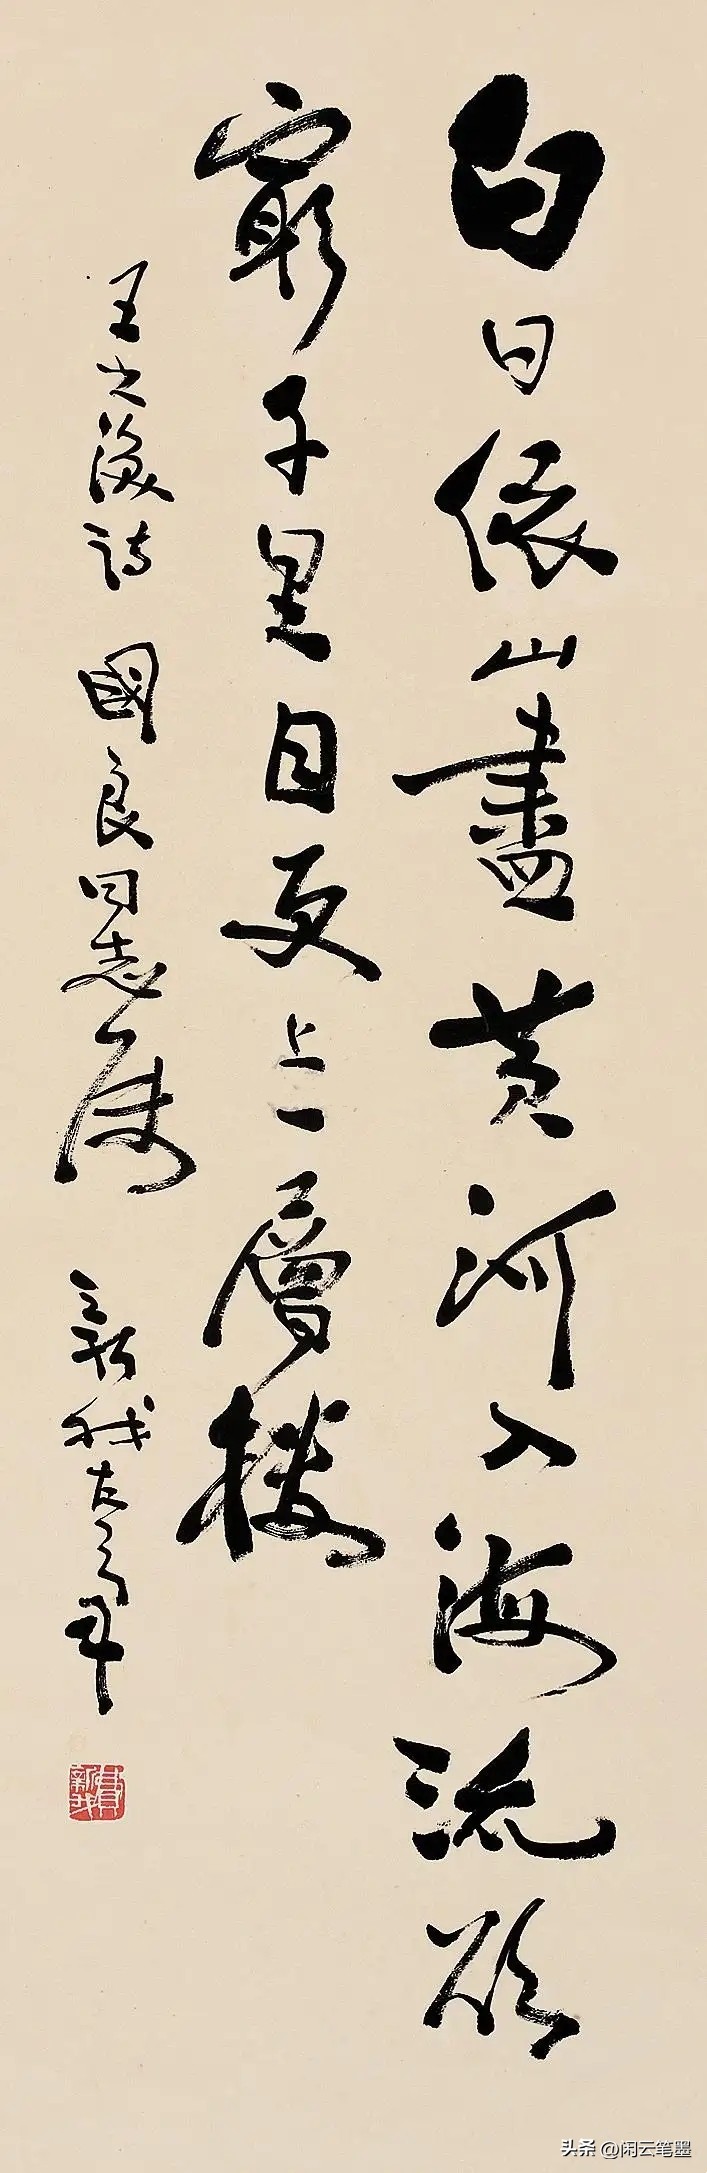 白日依山盡黄河入海流欲
窮千里目更上一層樓
王之渙詩 國良同志属 新我左筆
費新我
头条 @闲云笔墨